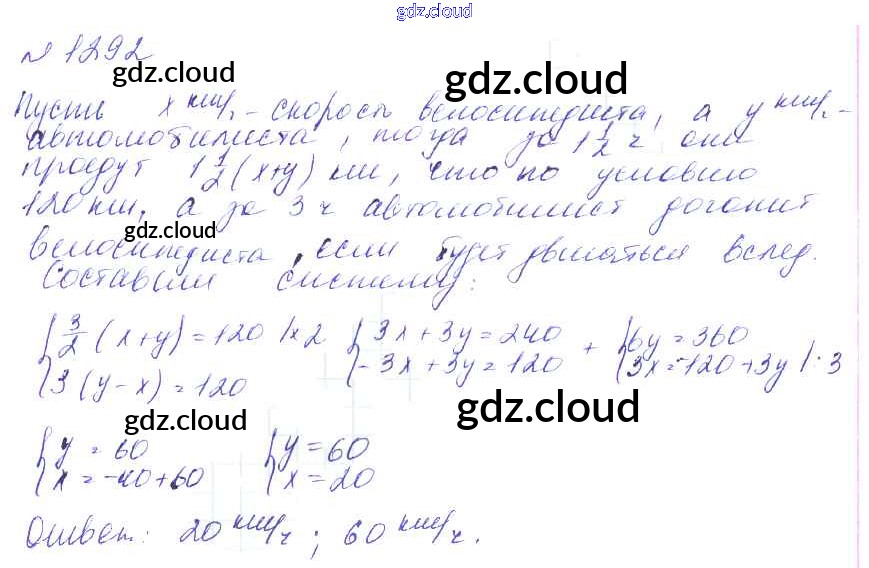 gdz.cloud
№ 1292
gdz.cloud gdz.cloud
Пусть x км/ч. - скорость велосипедиста, а y км/ч. -
автомобилиста, тогда за 1 1/2 ч они
проедут 1 1/2 (x+y) км, что по условию
120 км, а за 3 ч автомобилист догонит
gdz.cloud
велосипедиста, если будет двигаться вслед.
Составим систему:
{ 3/2 (x+y) = 120 |×2 { 3x + 3y = 240 + { 6y = 360
3 (y - x) = 120 - 3x + 3y = 120 3x = -120 + 3y |: 3
gdz.cloud gdz.cloud
{ y = 60 { y = 60
x = -40 + 60 x = 20
Ответ: 20 км/ч ; 60 км/ч.